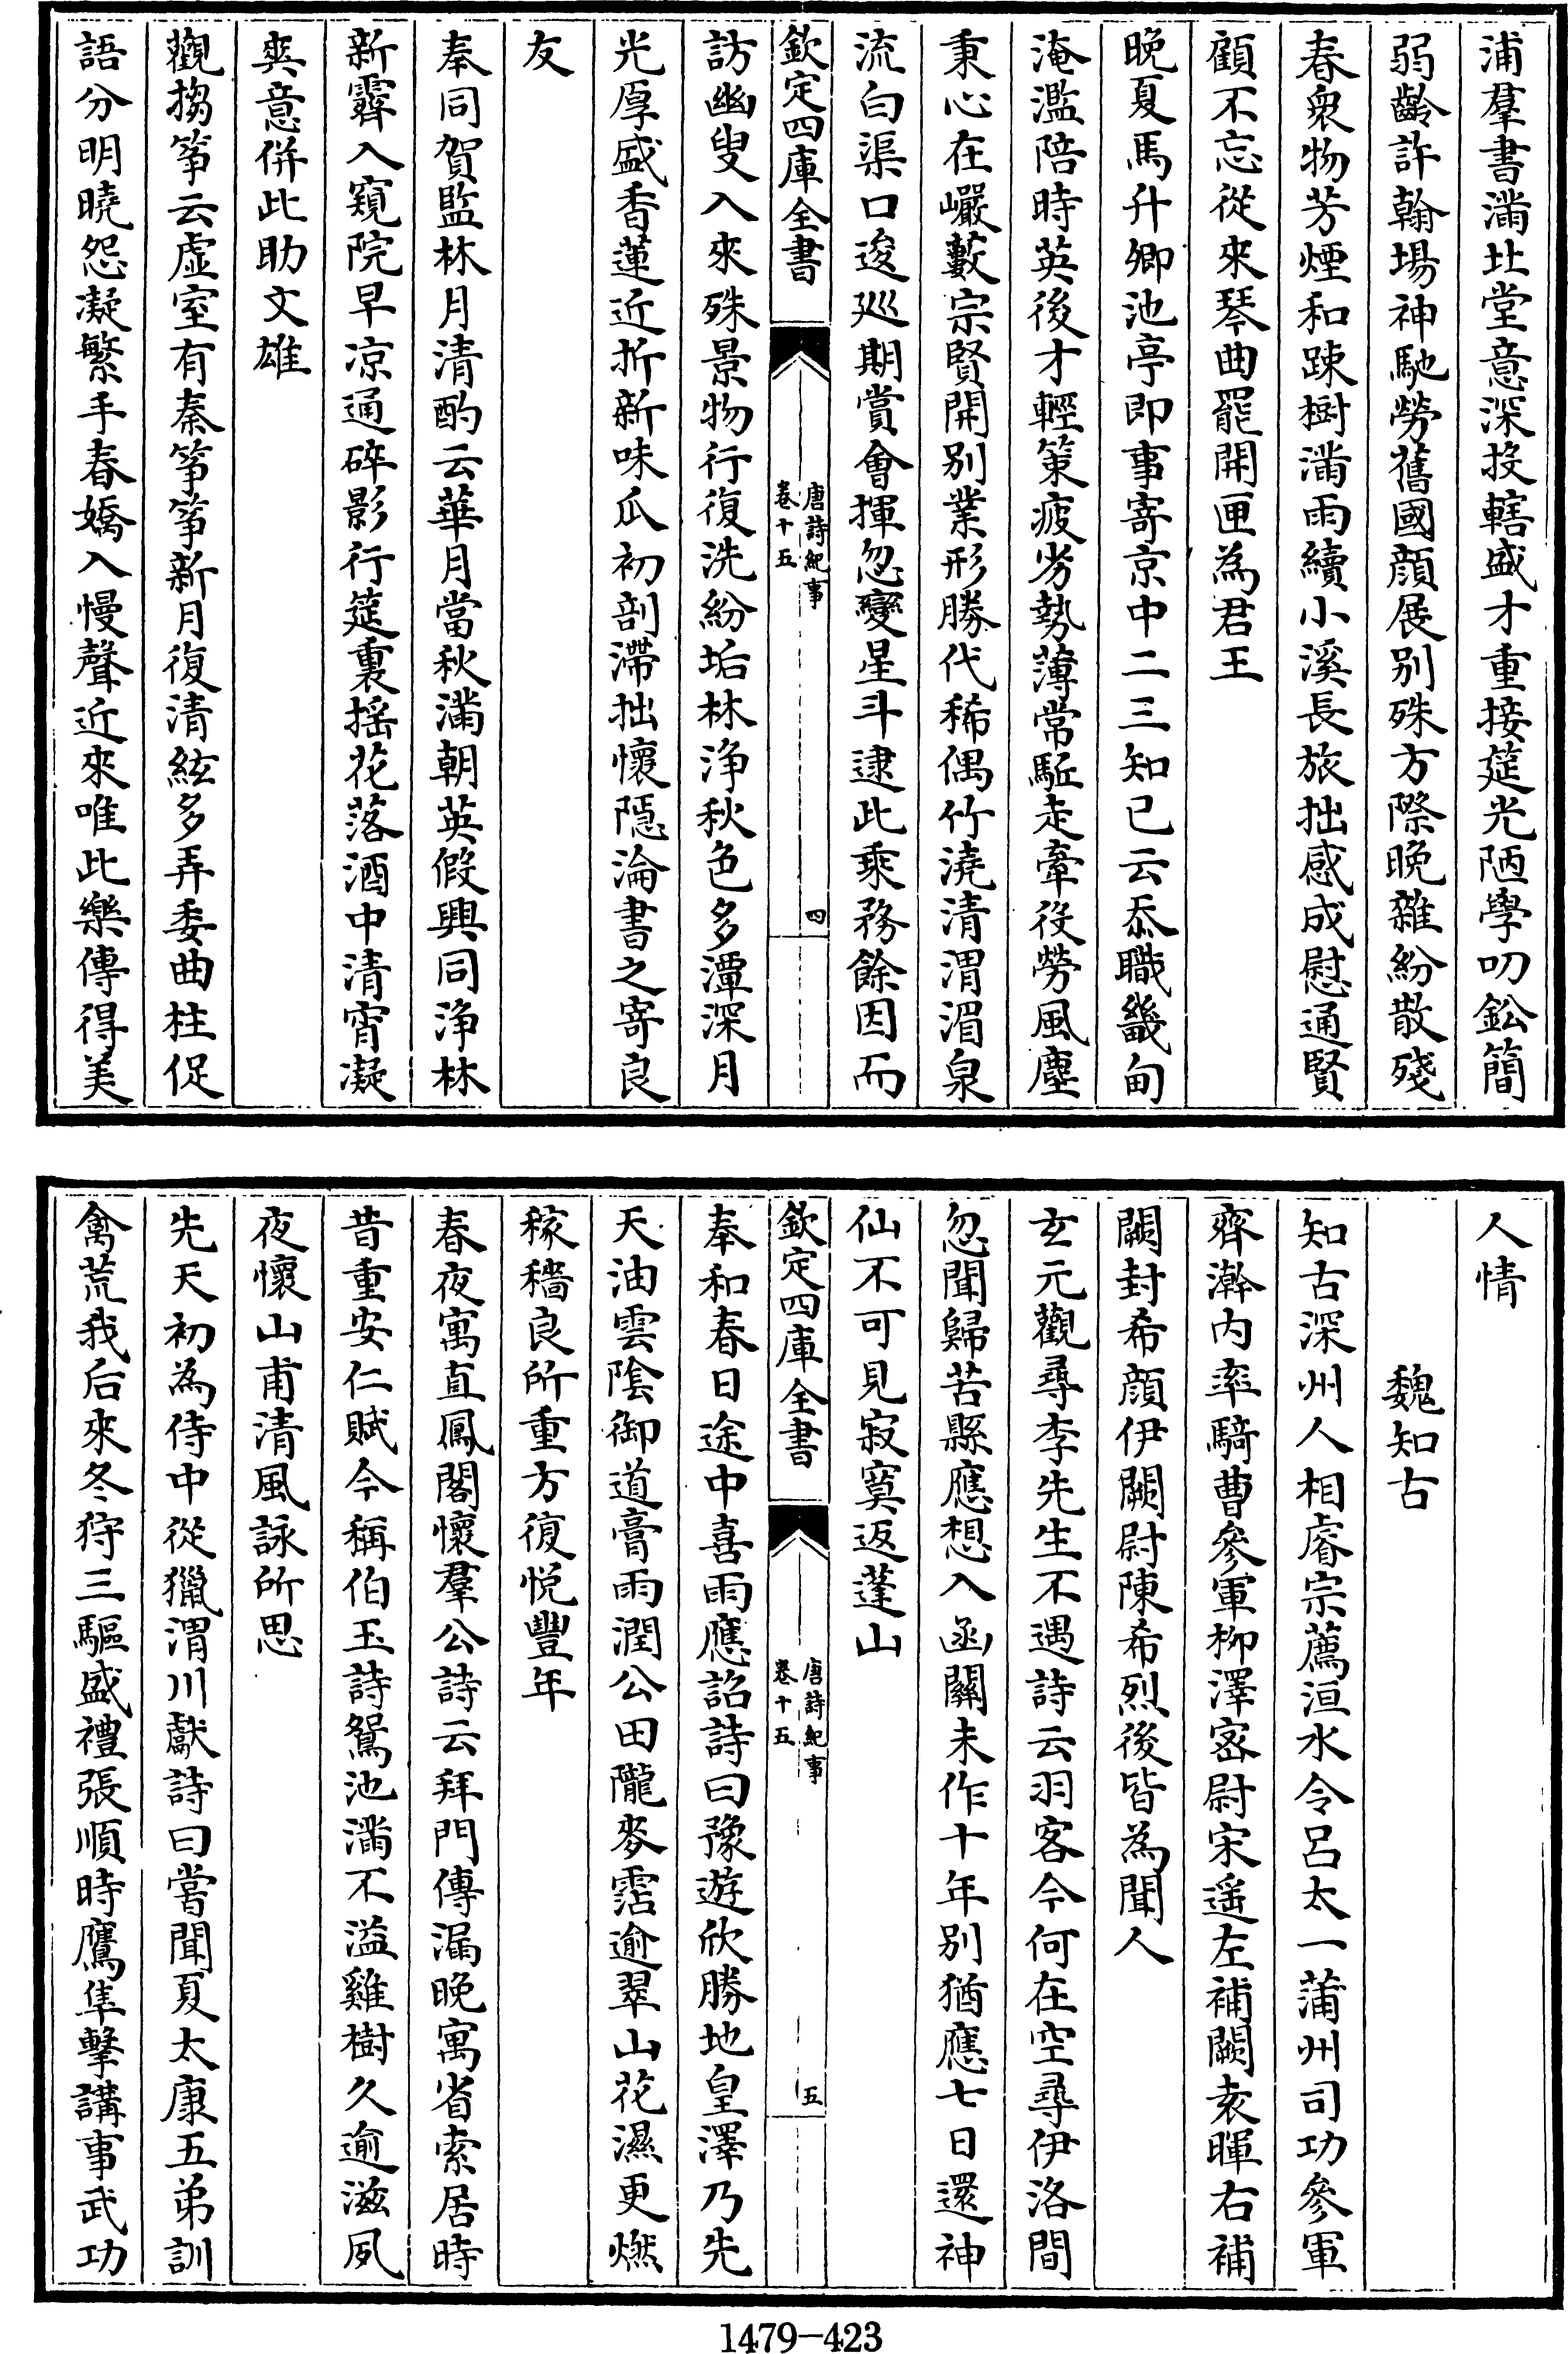 浦羣書滿北堂意深投轄盛才重接筵光陋學叨鉛簡
弱齡許翰場神馳勞舊國顔展别殊方際晚雜紛散殘
春衆物芳煙和踈樹滿雨續小溪長旅拙感成慰通賢
顧不忘從來琴曲罷開匣為君王
晚夏馬升卿池亭即事寄京中二三知已云忝職畿甸
淹濫陪時英後才輕策疲劣勢薄常駈走牽役勞風塵
秉心在巖藪宗賢開别業形勝代稀偶竹澆清渭湄泉
流白渠口逡廵期賞會揮忽變星斗逮此乘務餘因而
欽定四庫全書
唐詩紀事
卷十五
四
訪幽叟入來殊景物行復洗紛垢林浄秋色多潭深月
光厚盛香蓮近折新味瓜初剖滯拙懷隱淪書之寄良
友
奉同賀監林月清酌云華月當秋滿朝英假興同浄林
新霽入窺院早凉通碎影行筵裏揺花落酒中清宵凝
爽意併此助文雄
觀搊筝云虚室有秦筝筝新月復清絃多弄委曲柱促
語分明曉怨凝繁手春嬌入慢聲近來唯此樂傳得美
人情
魏知古
知古深州人相睿宗薦洹水令吕太一蒲州司功參軍
齊澣内率騎曹參軍栁澤宻尉宋遥左補闕袁暉右補
闕封希顔伊闕尉陳希烈後皆為聞人
玄元觀尋李先生不遇詩云羽客今何在空尋伊洛間
忽聞歸苦縣應想入函關未作十年别猶應七日還神
仙不可見寂寞返蓬山
欽定四庫全書
唐詩紀事
卷十五
五
奉和春日途中喜雨應詔詩曰豫遊欣勝地皇澤乃先
天油雲陰御道膏雨潤公田隴麥霑逾翠山花濕更燃
稼穡良所重方復悦豐年
春夜寓直鳳閣懷羣公詩云拜門傳漏晚寓省索居時
昔重安仁賦今稱伯玉詩鴛池滿不溢雞樹久逾滋夙
夜懷山甫清風詠所思
先天初為侍中從獵渭川獻詩曰嘗聞夏太康五弟訓
禽荒我后來冬狩三驅盛禮張順時鷹隼擊講事武功
1479-423